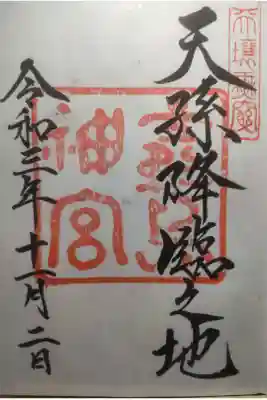 天壤無窮
天孫降臨之地
神宮
令和三年十一月二日